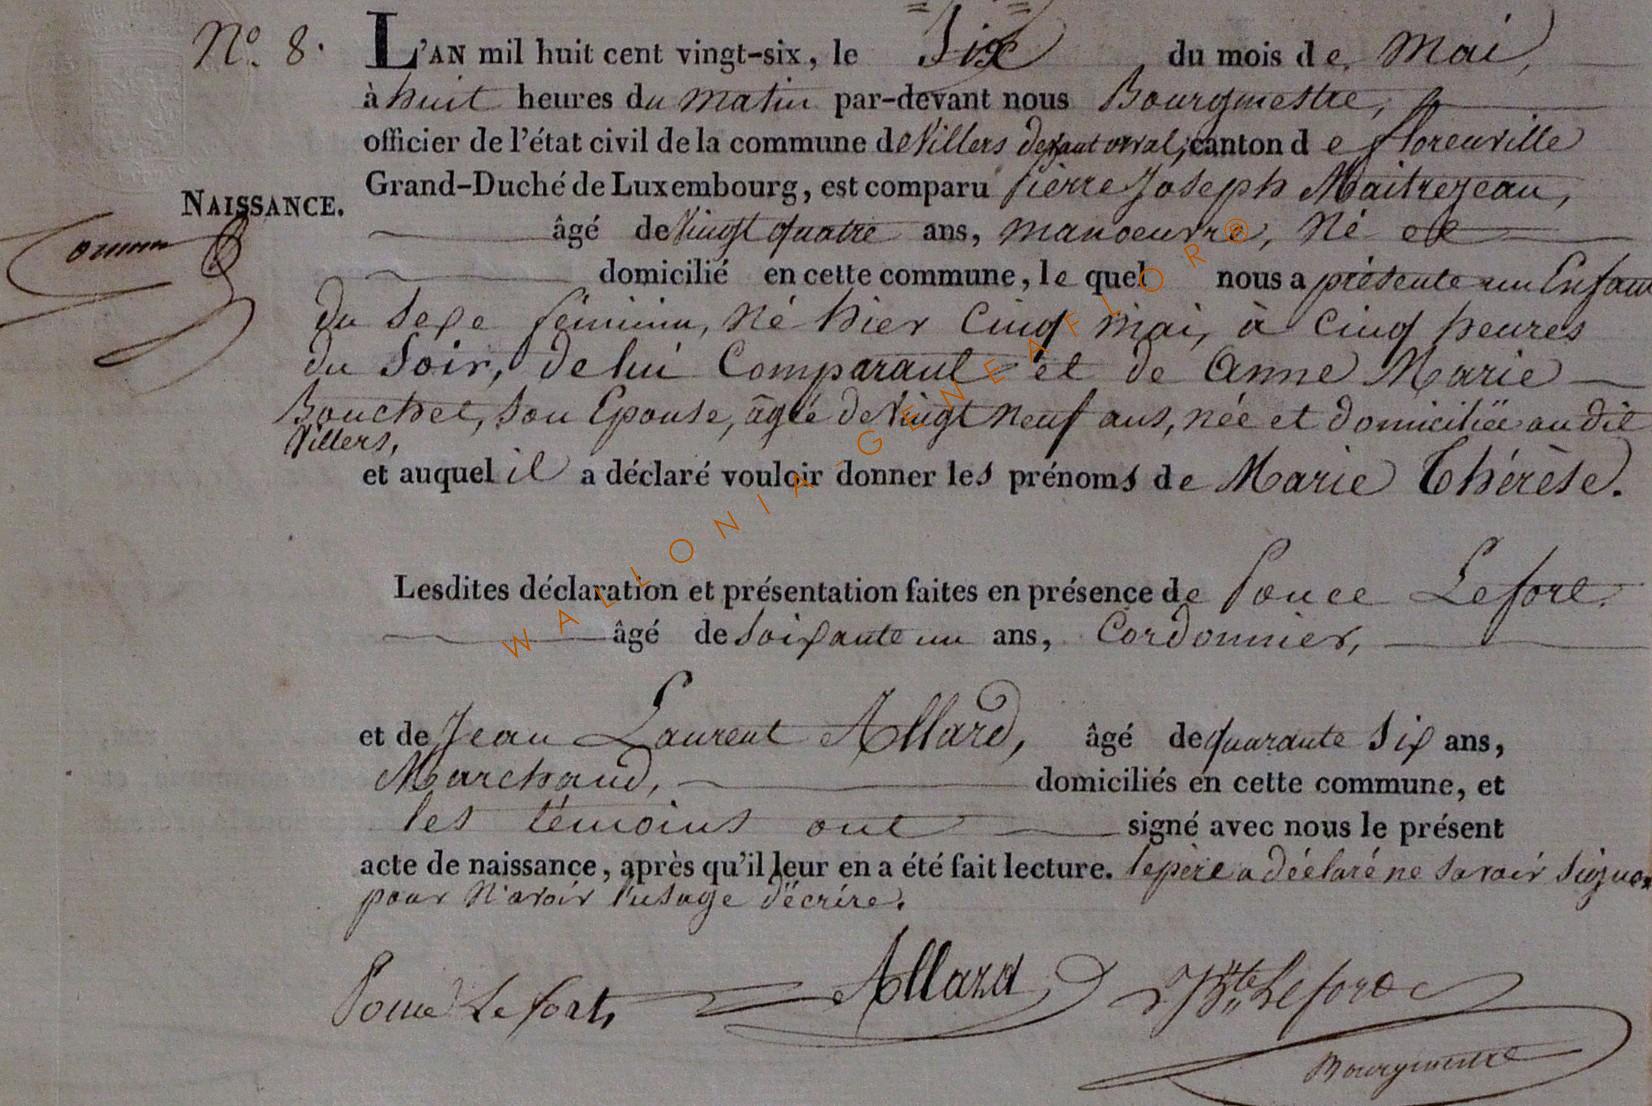 N.o 8.
L'AN mil huit cent vingt-six, le Six du mois de Mai,
à huit heures du matin par-devant nous Bourgmestre,
officier de l'état civil de la commune de Villers devant orval, canton de florenville
Grand-Duché de Luxembourg, est comparu Pierre Joseph Maitrejean,
NAISSANCE.
âgé de Vingt quatre ans, manoeuvre, Né et
domicilié en cette commune, le quel nous a présenté un Enfant
du Sexe féminin, Né hier Cinq mai, à Cinq heures
du Soir, de lui Comparant et de Anne Marie
Bouchet, Son Epouse, âgée de Vingt neuf ans, née et domiciliée au dit
Villers,
et auquel il a déclaré vouloir donner les prénoms de Marie Thérèse.
Lesdites déclaration et présentation faites en présence de Ponce Lefort.
âgé de Soixante un ans, Cordonnier,
et de Jean Laurent Allard, âgé de quarante Six ans,
Marchand, domiciliés en cette commune, et
les témoins ont signé avec nous le présent
acte de naissance, après qu'il leur en a été fait lecture. le père a déclaré ne Savoir Signer
pour N'avoir l'usage d'écrire.
Ponce Lefort, Allard JBte Lefort
Bourgmestre
WALLONIA-GENEAFLOR®